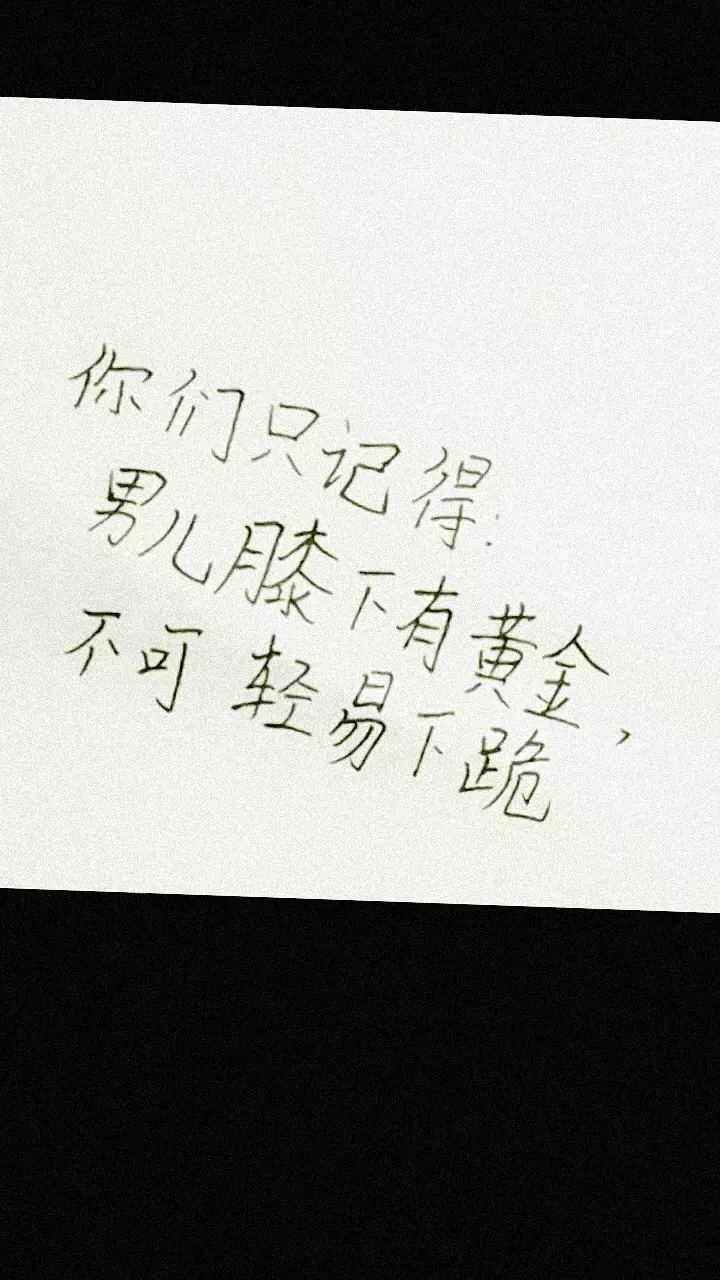 你们只记得:
男儿膝下有黄金,
不可轻易下跪